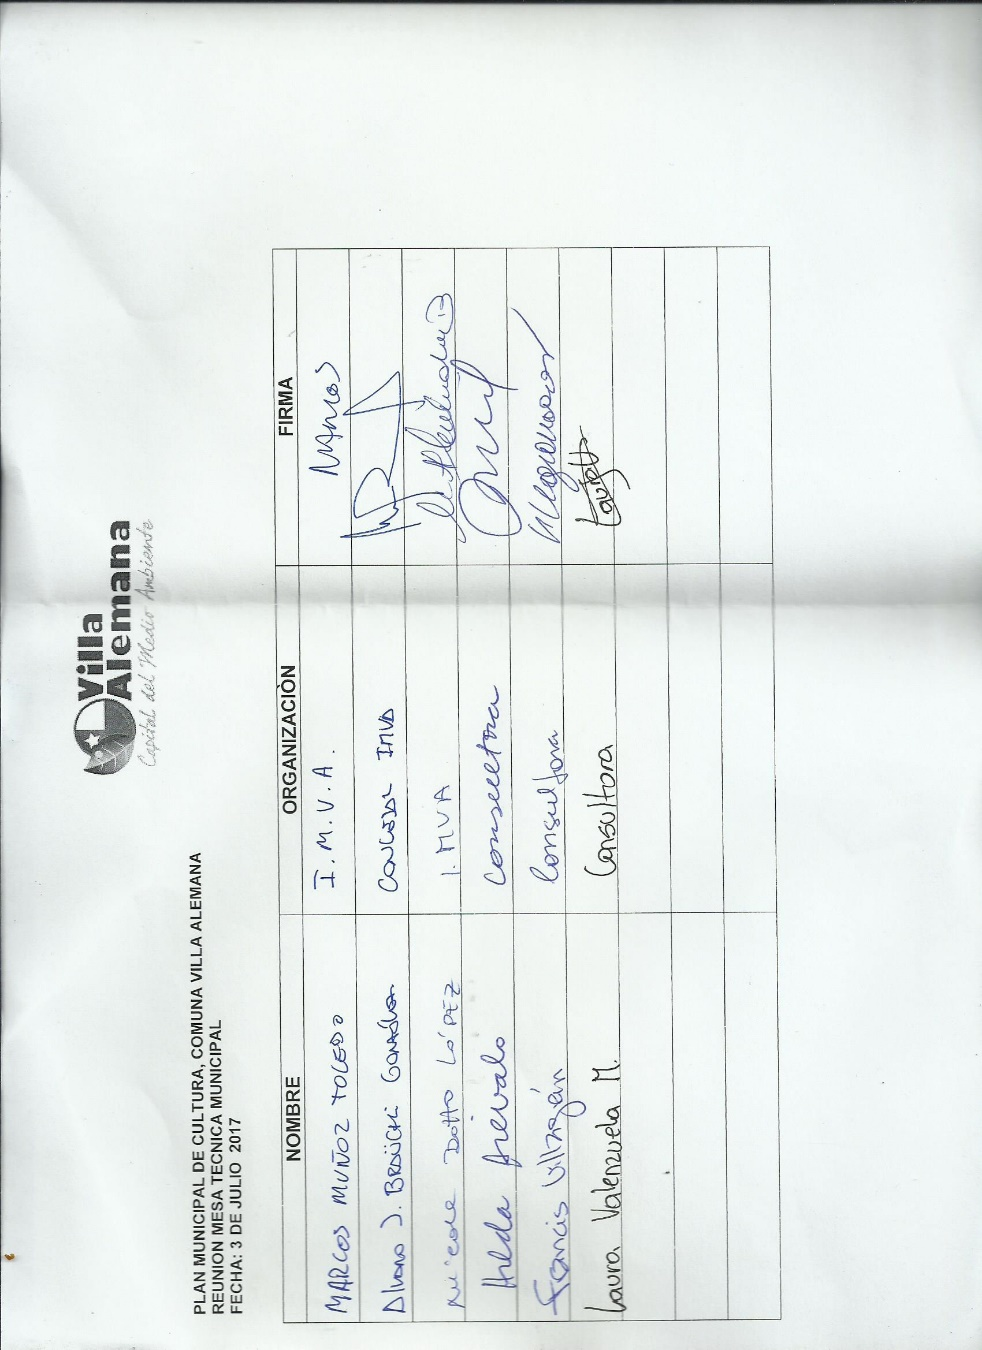 Villa
Alemana
Capital del Medio Ambiente
PLAN MUNICIPAL DE CULTURA, COMUNA VILLA ALEMANA
REUNION MESA TECNICA MUNICIPAL
FECHA: 3 DE JULIO 2017
NOMBRE ORGANIZACIÒN FIRMA
MARCOS MUÑOZ TOLEDO I.M.V.A. MARCOS
ALVARO J. BRAÜCHI GONZÁLEZ CONCEJAL IMVA
Nicole Dotto LÓPEZ I.MVA
Hilda Arévalo Consultora
Francis Villagrán Consultora
Laura Valenzuela M. Consultora